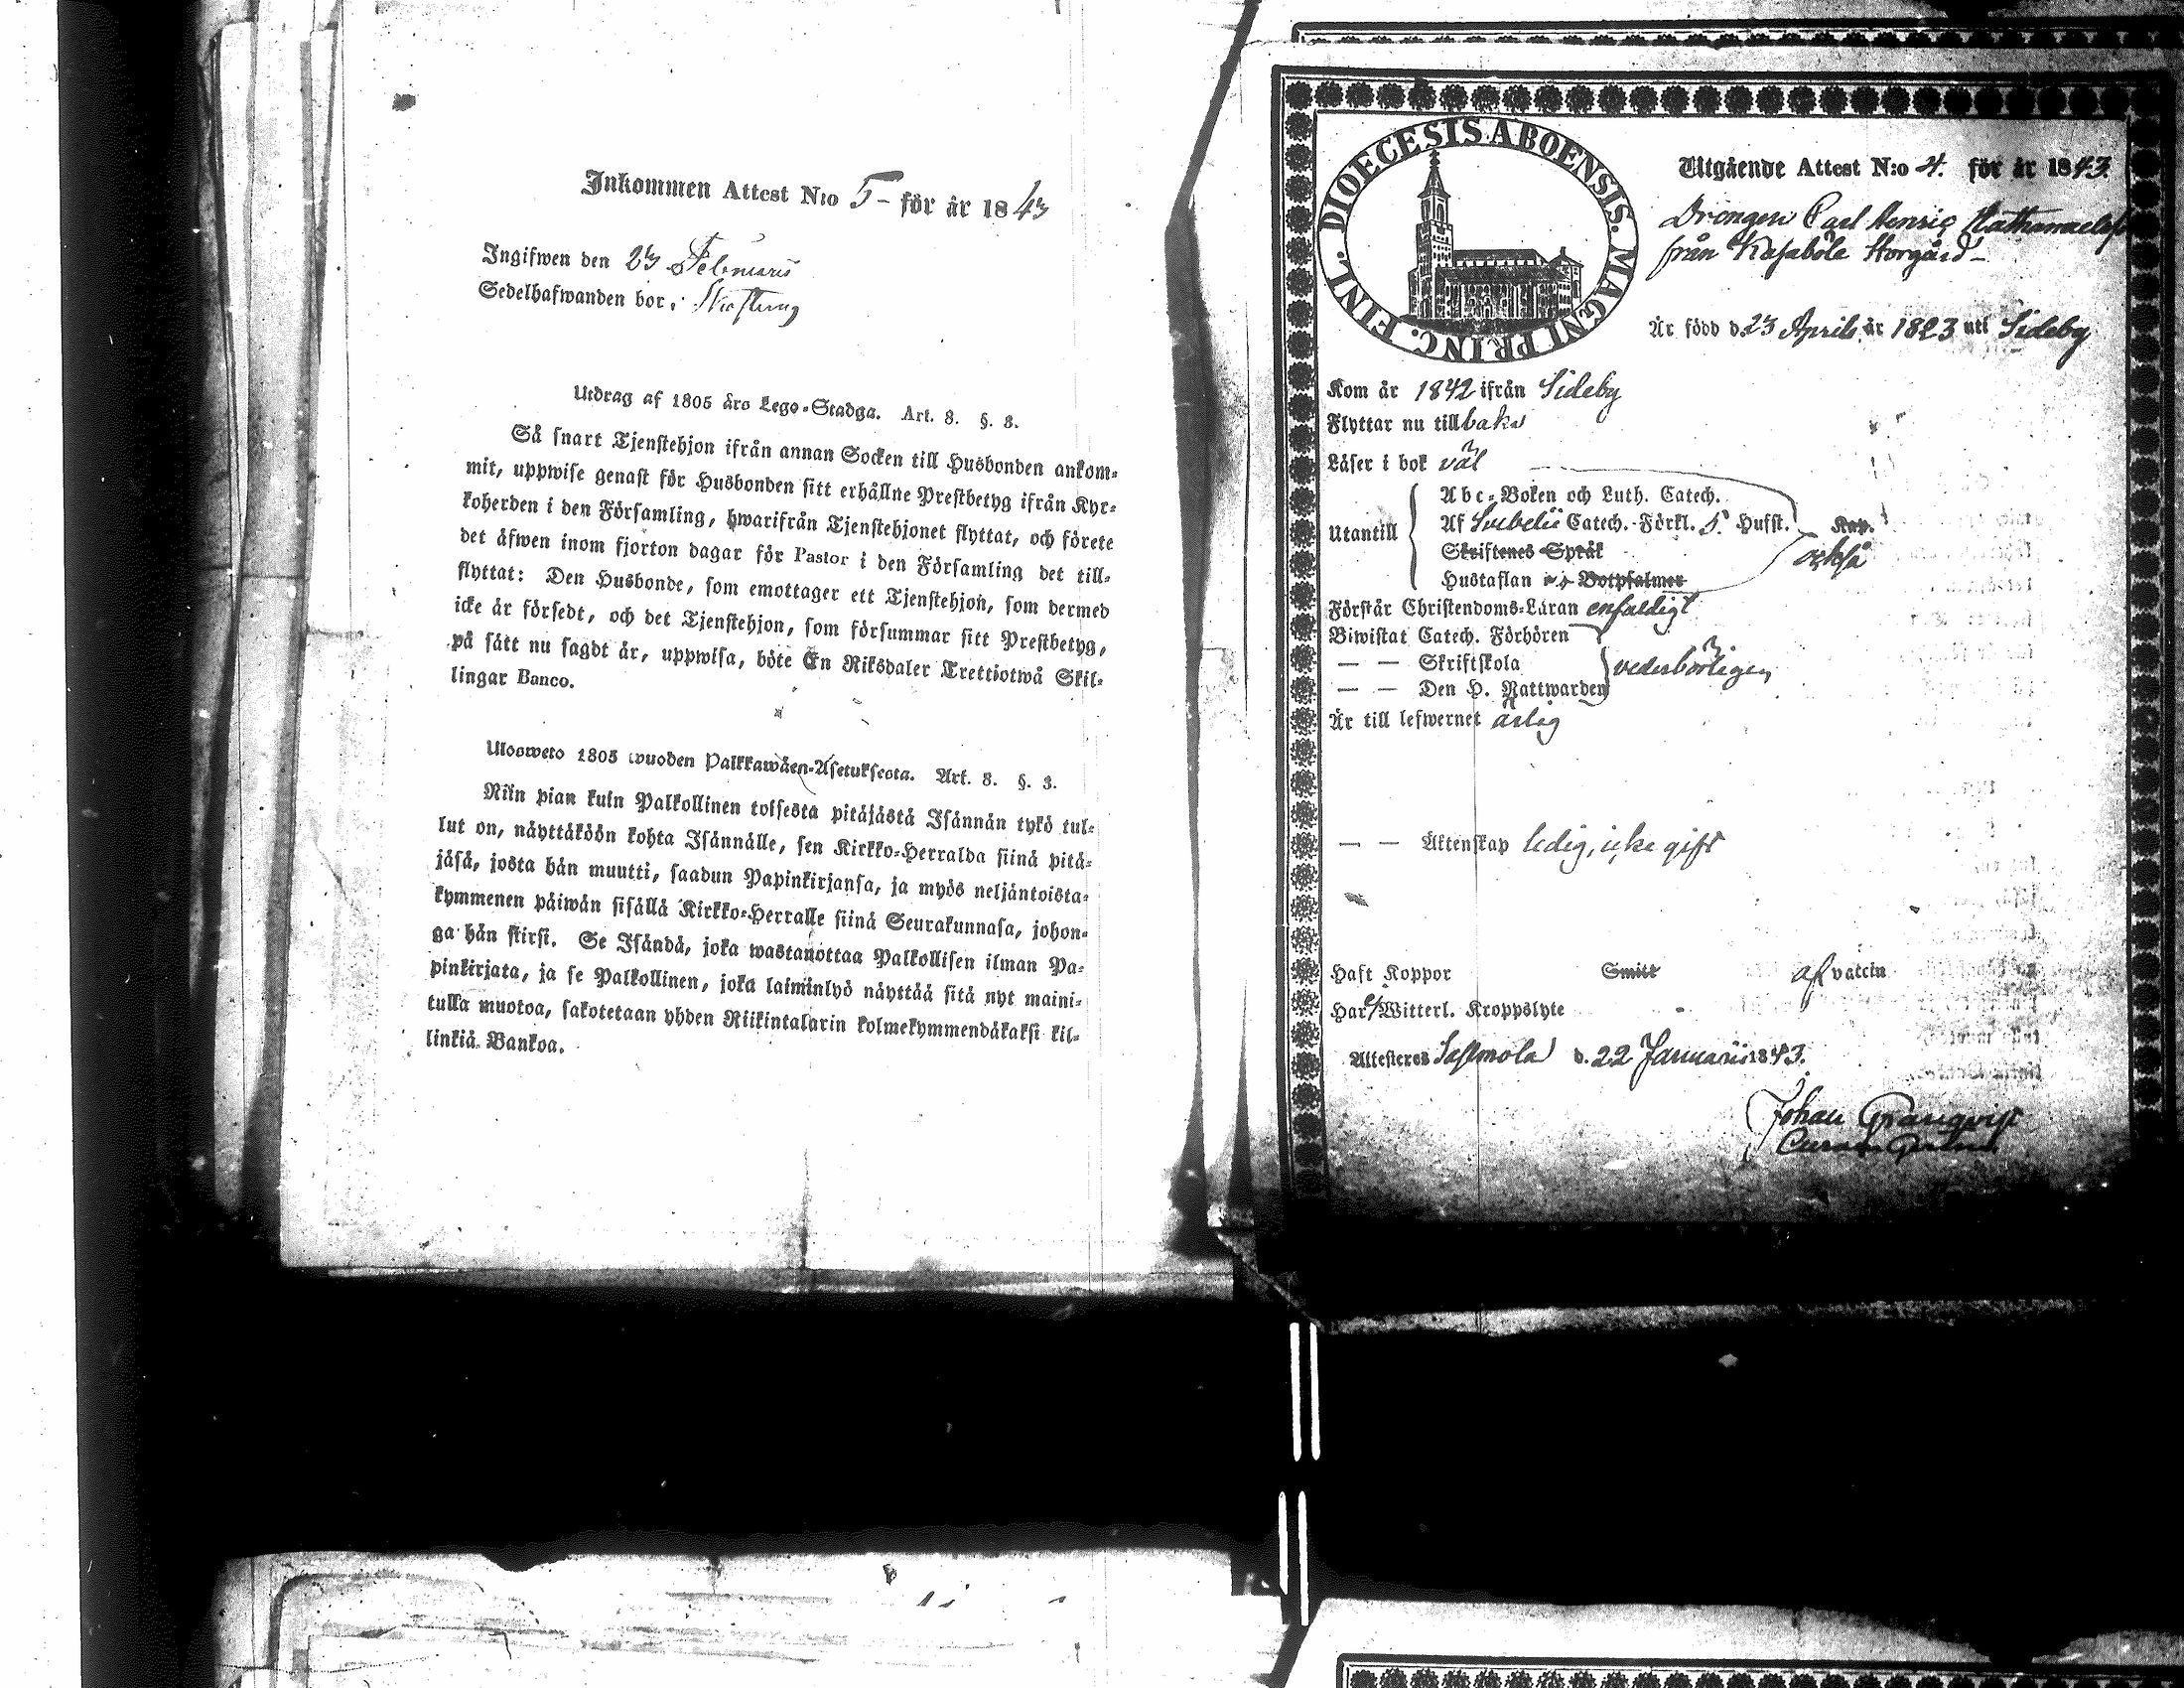 Inkommen Attest N:o 5 – för år 1843
Ingifwen den 23 Februarii
Sedelhafwanden bor i Skaftung
Utdrag af 1805 års Lego-Stadga. Art. 8. §. 3.
Så snart Tjenstehjon ifrån annan Socken till Husbonden ankom-
mit, uppwise genast för Husbonden sitt erhållne Prestbetyg ifrån Kyr-
koherden i den Församling, hwarifrån Tjenstehjonet flyttat, och förete
det äfwen inom fjorton dagar för Pastor i den Församling det till-
flyttat: Den Husbonde, som emottager ett Tjenstehjon, som dermed
icke är försedt, och det Tjenstehjon, som försummar sitt Prestbetyg,
på sätt nu sagdt är, uppwisa, böte En Riksdaler Trettiotwå Skil-
lingar Banco.
Ulosweto 1805 wuoden Palkkawäen-Asetuksesta. Art. 8. §. 3.
Niin pian kuin Palkollinen toisesta pitäjästä Isännän tykö tul-
lut on, näyttäköön kohta Isännälle, sen Kirkko-Herralda siinä pitä-
jäsä, josta hän muutti, saadun Papinkirjansa, ja myös neljäntoista-
kymmenen päiwän sisällä Kirkko-Herralle siinä Seurakunnasa, johon-
ga hän siirsi. Se Isändä, joka wastanottaa Palkollisen ilman Pa-
pinkirjata, ja se Palkollinen, joka laiminlyö näyttää sitä nyt maini-
tulla muotoa, sakotetaan yhden Riikintalarin kolmekymmendäkaksi kil-
linkiä Bankoa.
DIOECESIS ABOENSIS. MAGNI PRINC. FINL.
Utgående Attest N:o 4. för år 1843.
Drengen Carl Henric Nathanaelss
från Kasaböle Storgård –
Är född d. 23 Aprils år 1823 uti Sideby
Kom år 1842 ifrån Sideby
Flyttar nu tillbaka
Läser i bok väl
Utantill
Abc-Boken och Luth. Catech.
Af Svebelii Catech. Förkl. 5. Hufst. Kap.
Skriftenes Språk
också
Hustaflan Botpsalmer
Förstår Christendoms-Läran enfaldigt
Biwistat Catech. Förhören
— — Skriftskola
vederbörligen
— — Den H. Nattwarden
Är till lefwernet ärlig
— — Äktenskap ledig, icke gift
Haft Koppor Smitt af vaccin
Har ej Witterl. Kroppslyte
Attesteras Sastmola d. 22 Januarii 1843.
Johan Granqvist